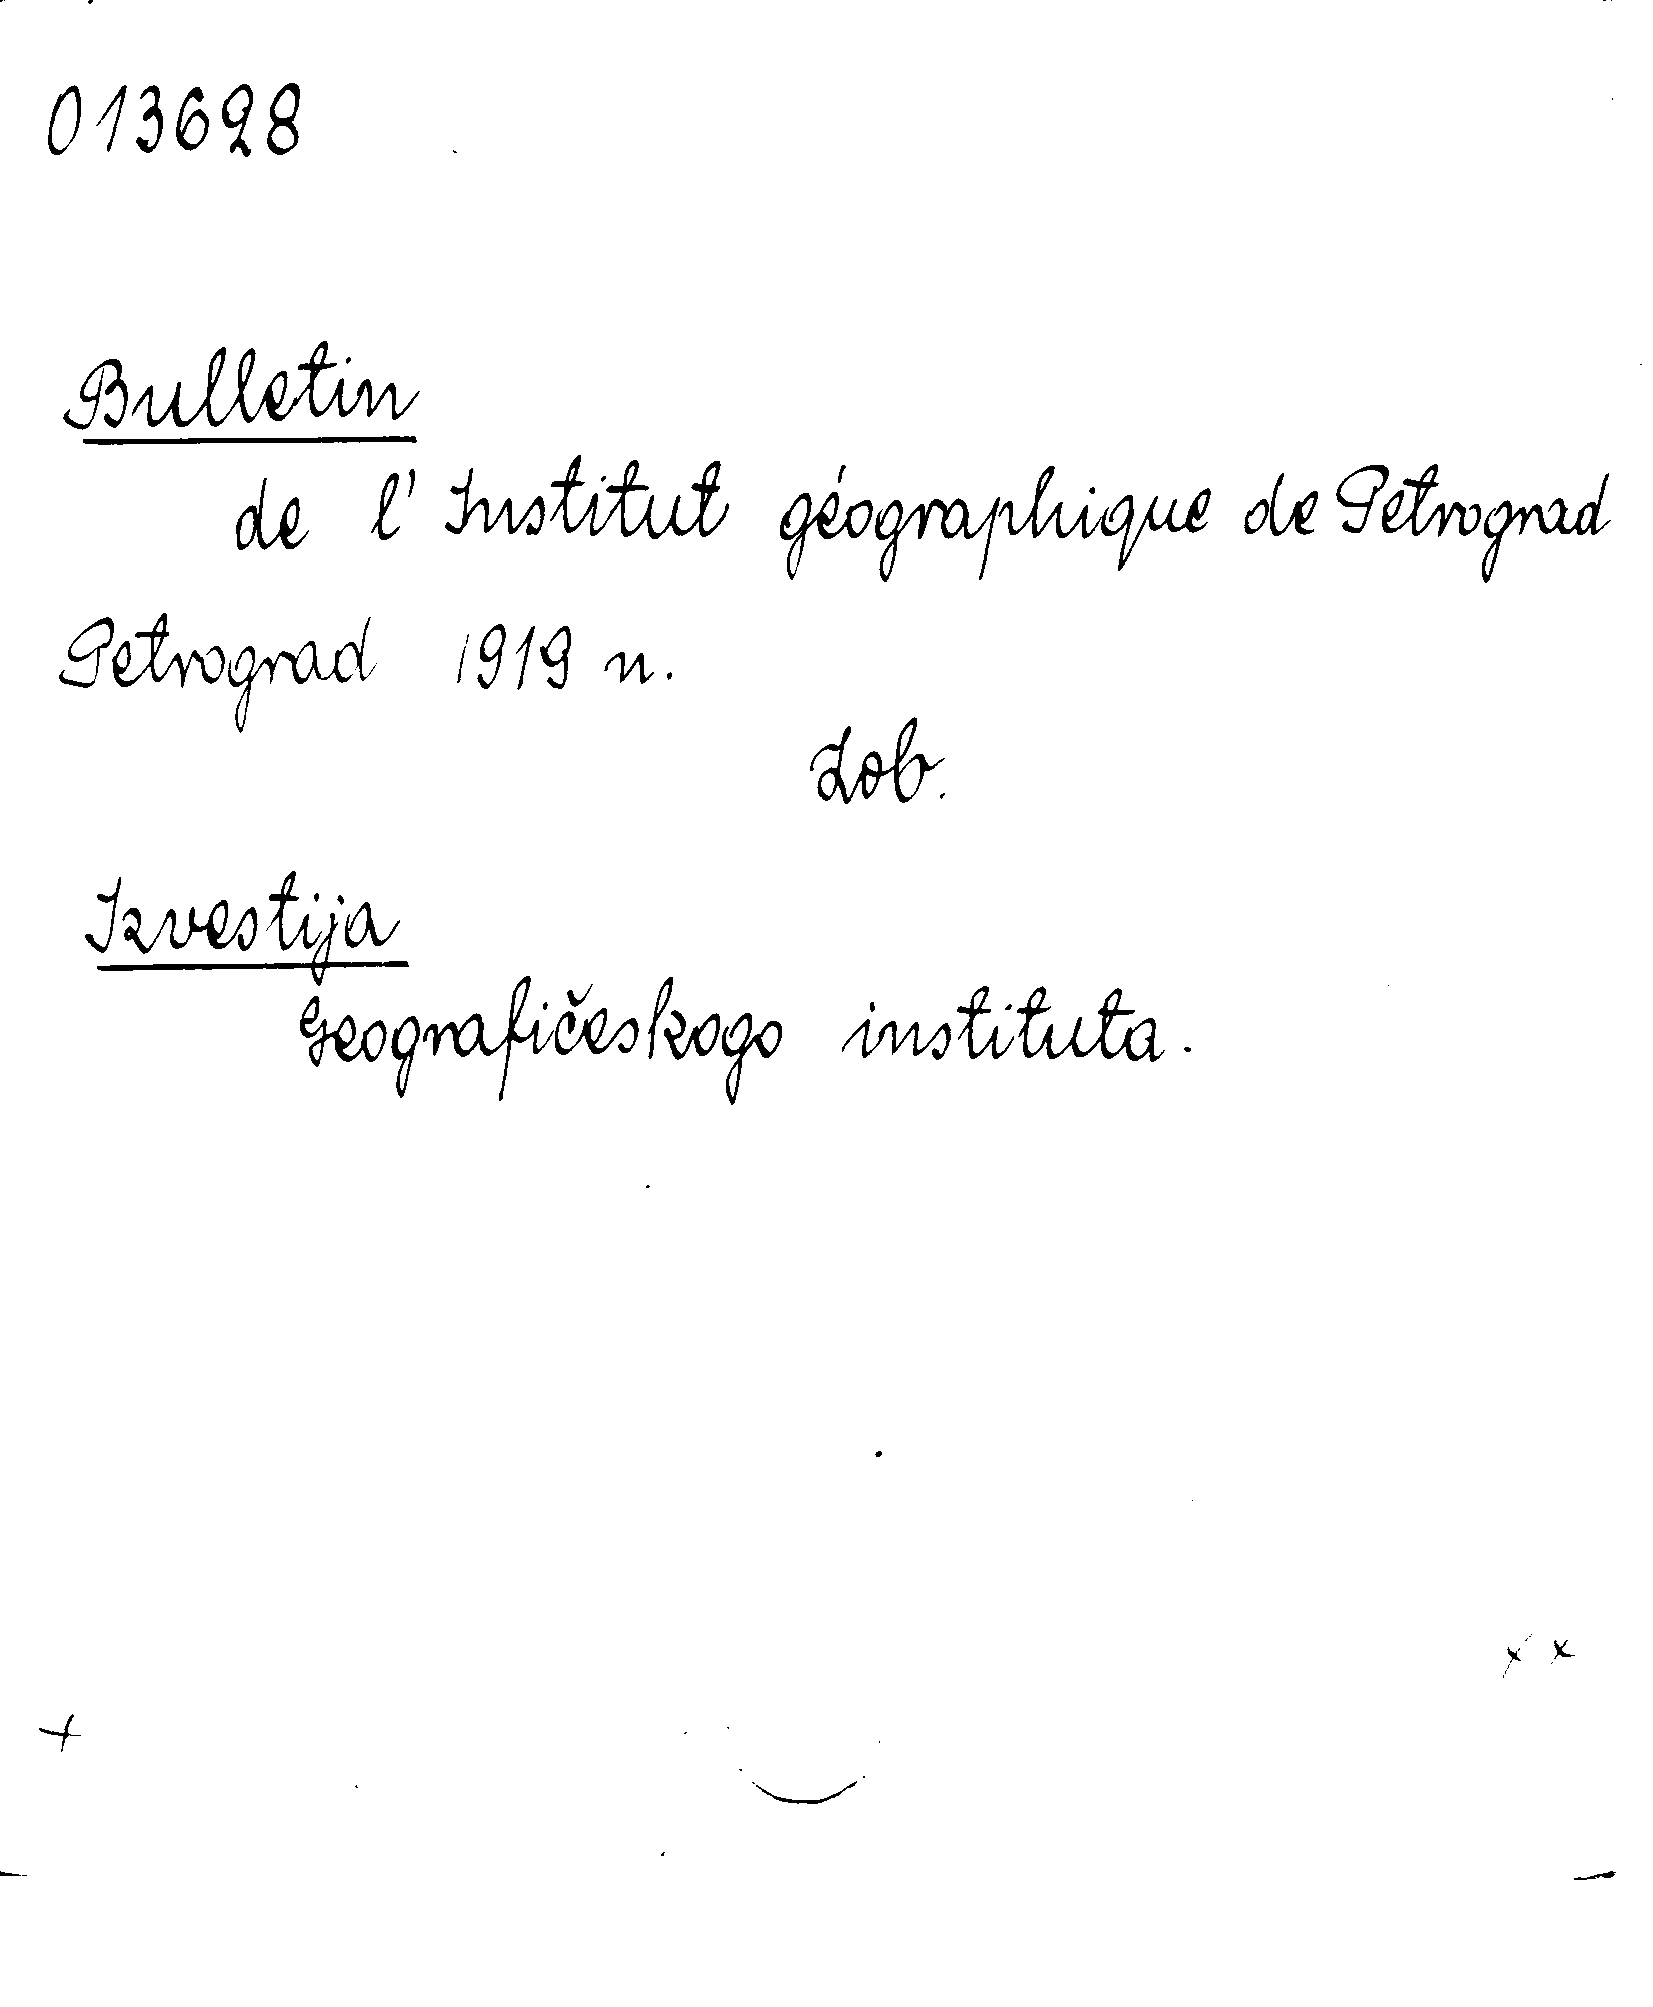 013628
Bulletin
de l'Institut géographique de Petrograd
Petrograd 1919 n.
Zob.
Izvestija
Geografičeskogo instituta.
+
x x